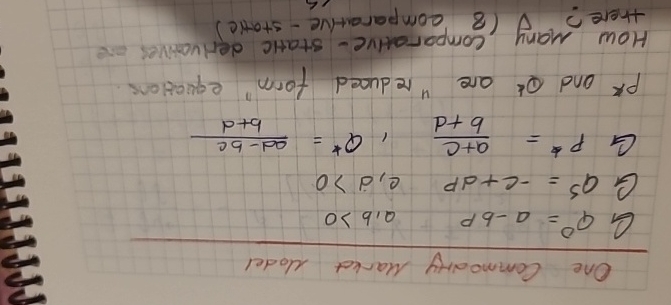 One Commodity Market Model
G Q^D = a-bP a,b>0
G Q^S = -c+dP c,d>0
G P* = (a+c)/(b+d) , Q* = (ad-bc)/(b+d)
P* and Q* are "reduced form" equations.
How many comparative-static derivatives are
there? (8 comparative-static)